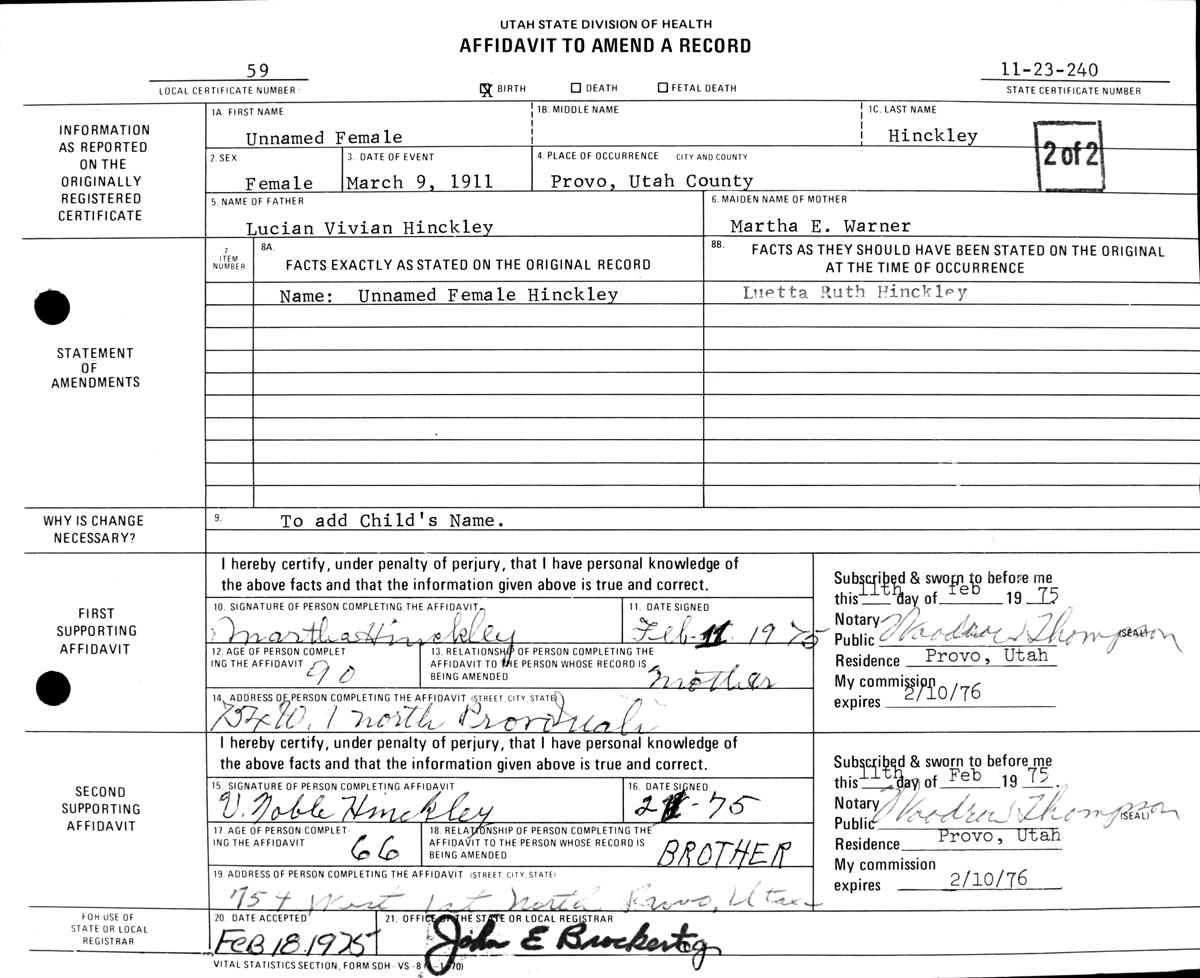 UTAH STATE DIVISION OF HEALTH
AFFIDAVIT TO AMEND A RECORD
59
LOCAL CERTIFICATE NUMBER
X BIRTH DEATH FETAL DEATH
11-23-240
STATE CERTIFICATE NUMBER
INFORMATION AS REPORTED ON THE ORIGINALLY REGISTERED CERTIFICATE
1A. FIRST NAME
Unnamed Female
1B. MIDDLE NAME
1C. LAST NAME
Hinckley
2 of 2
2. SEX
Female
3. DATE OF EVENT
March 9, 1911
4. PLACE OF OCCURRENCE CITY AND COUNTY
Provo, Utah County
5. NAME OF FATHER
Lucian Vivian Hinckley
6. MAIDEN NAME OF MOTHER
Martha E. Warner
STATEMENT OF AMENDMENTS
7 ITEM NUMBER
8A.
FACTS EXACTLY AS STATED ON THE ORIGINAL RECORD
8B.
FACTS AS THEY SHOULD HAVE BEEN STATED ON THE ORIGINAL
AT THE TIME OF OCCURRENCE
Name: Unnamed Female Hinckley
Luetta Ruth Hinckley
WHY IS CHANGE NECESSARY?
9.
To add Child's Name.
FIRST SUPPORTING AFFIDAVIT
I hereby certify, under penalty of perjury, that I have personal knowledge of
the above facts and that the information given above is true and correct.
10. SIGNATURE OF PERSON COMPLETING THE AFFIDAVIT
Martha Hinckley
11. DATE SIGNED
Feb-11 1975
12. AGE OF PERSON COMPLET
ING THE AFFIDAVIT
90
13. RELATIONSHIP OF PERSON COMPLETING THE
AFFIDAVIT TO THE PERSON WHOSE RECORD IS
BEING AMENDED
Mother
14. ADDRESS OF PERSON COMPLETING THE AFFIDAVIT (STREET, CITY, STATE)
W. 1 north Provo
Subscribed & sworn to before me
this 11th day of feb 19 75
Notary
Public Woodrow Thompson (SEAL)
Residence Provo, Utah
My commission
expires 2/10/76
SECOND SUPPORTING AFFIDAVIT
I hereby certify, under penalty of perjury, that I have personal knowledge of
the above facts and that the information given above is true and correct.
15. SIGNATURE OF PERSON COMPLETING AFFIDAVIT
V. Noble Hinckley
16. DATE SIGNED
-75
17. AGE OF PERSON COMPLET
ING THE AFFIDAVIT
66
18. RELATIONSHIP OF PERSON COMPLETING THE
AFFIDAVIT TO THE PERSON WHOSE RECORD IS
BEING AMENDED
BROTHER
19. ADDRESS OF PERSON COMPLETING THE AFFIDAVIT (STREET, CITY, STATE)
754 West 1st North Provo, Utah
Subscribed & sworn to before me
this 11th day of Feb 19 75.
Notary
Public Woodrow Thompson (SEAL)
Residence Provo, Utah
My commission
expires 2/10/76
FOR USE OF STATE OR LOCAL REGISTRAR
20. DATE ACCEPTED
FEB 18 1975
21. OFFICE OF THE STATE OR LOCAL REGISTRAR
John E Brockert
VITAL STATISTICS SECTION, FORM SDH - VS - 8